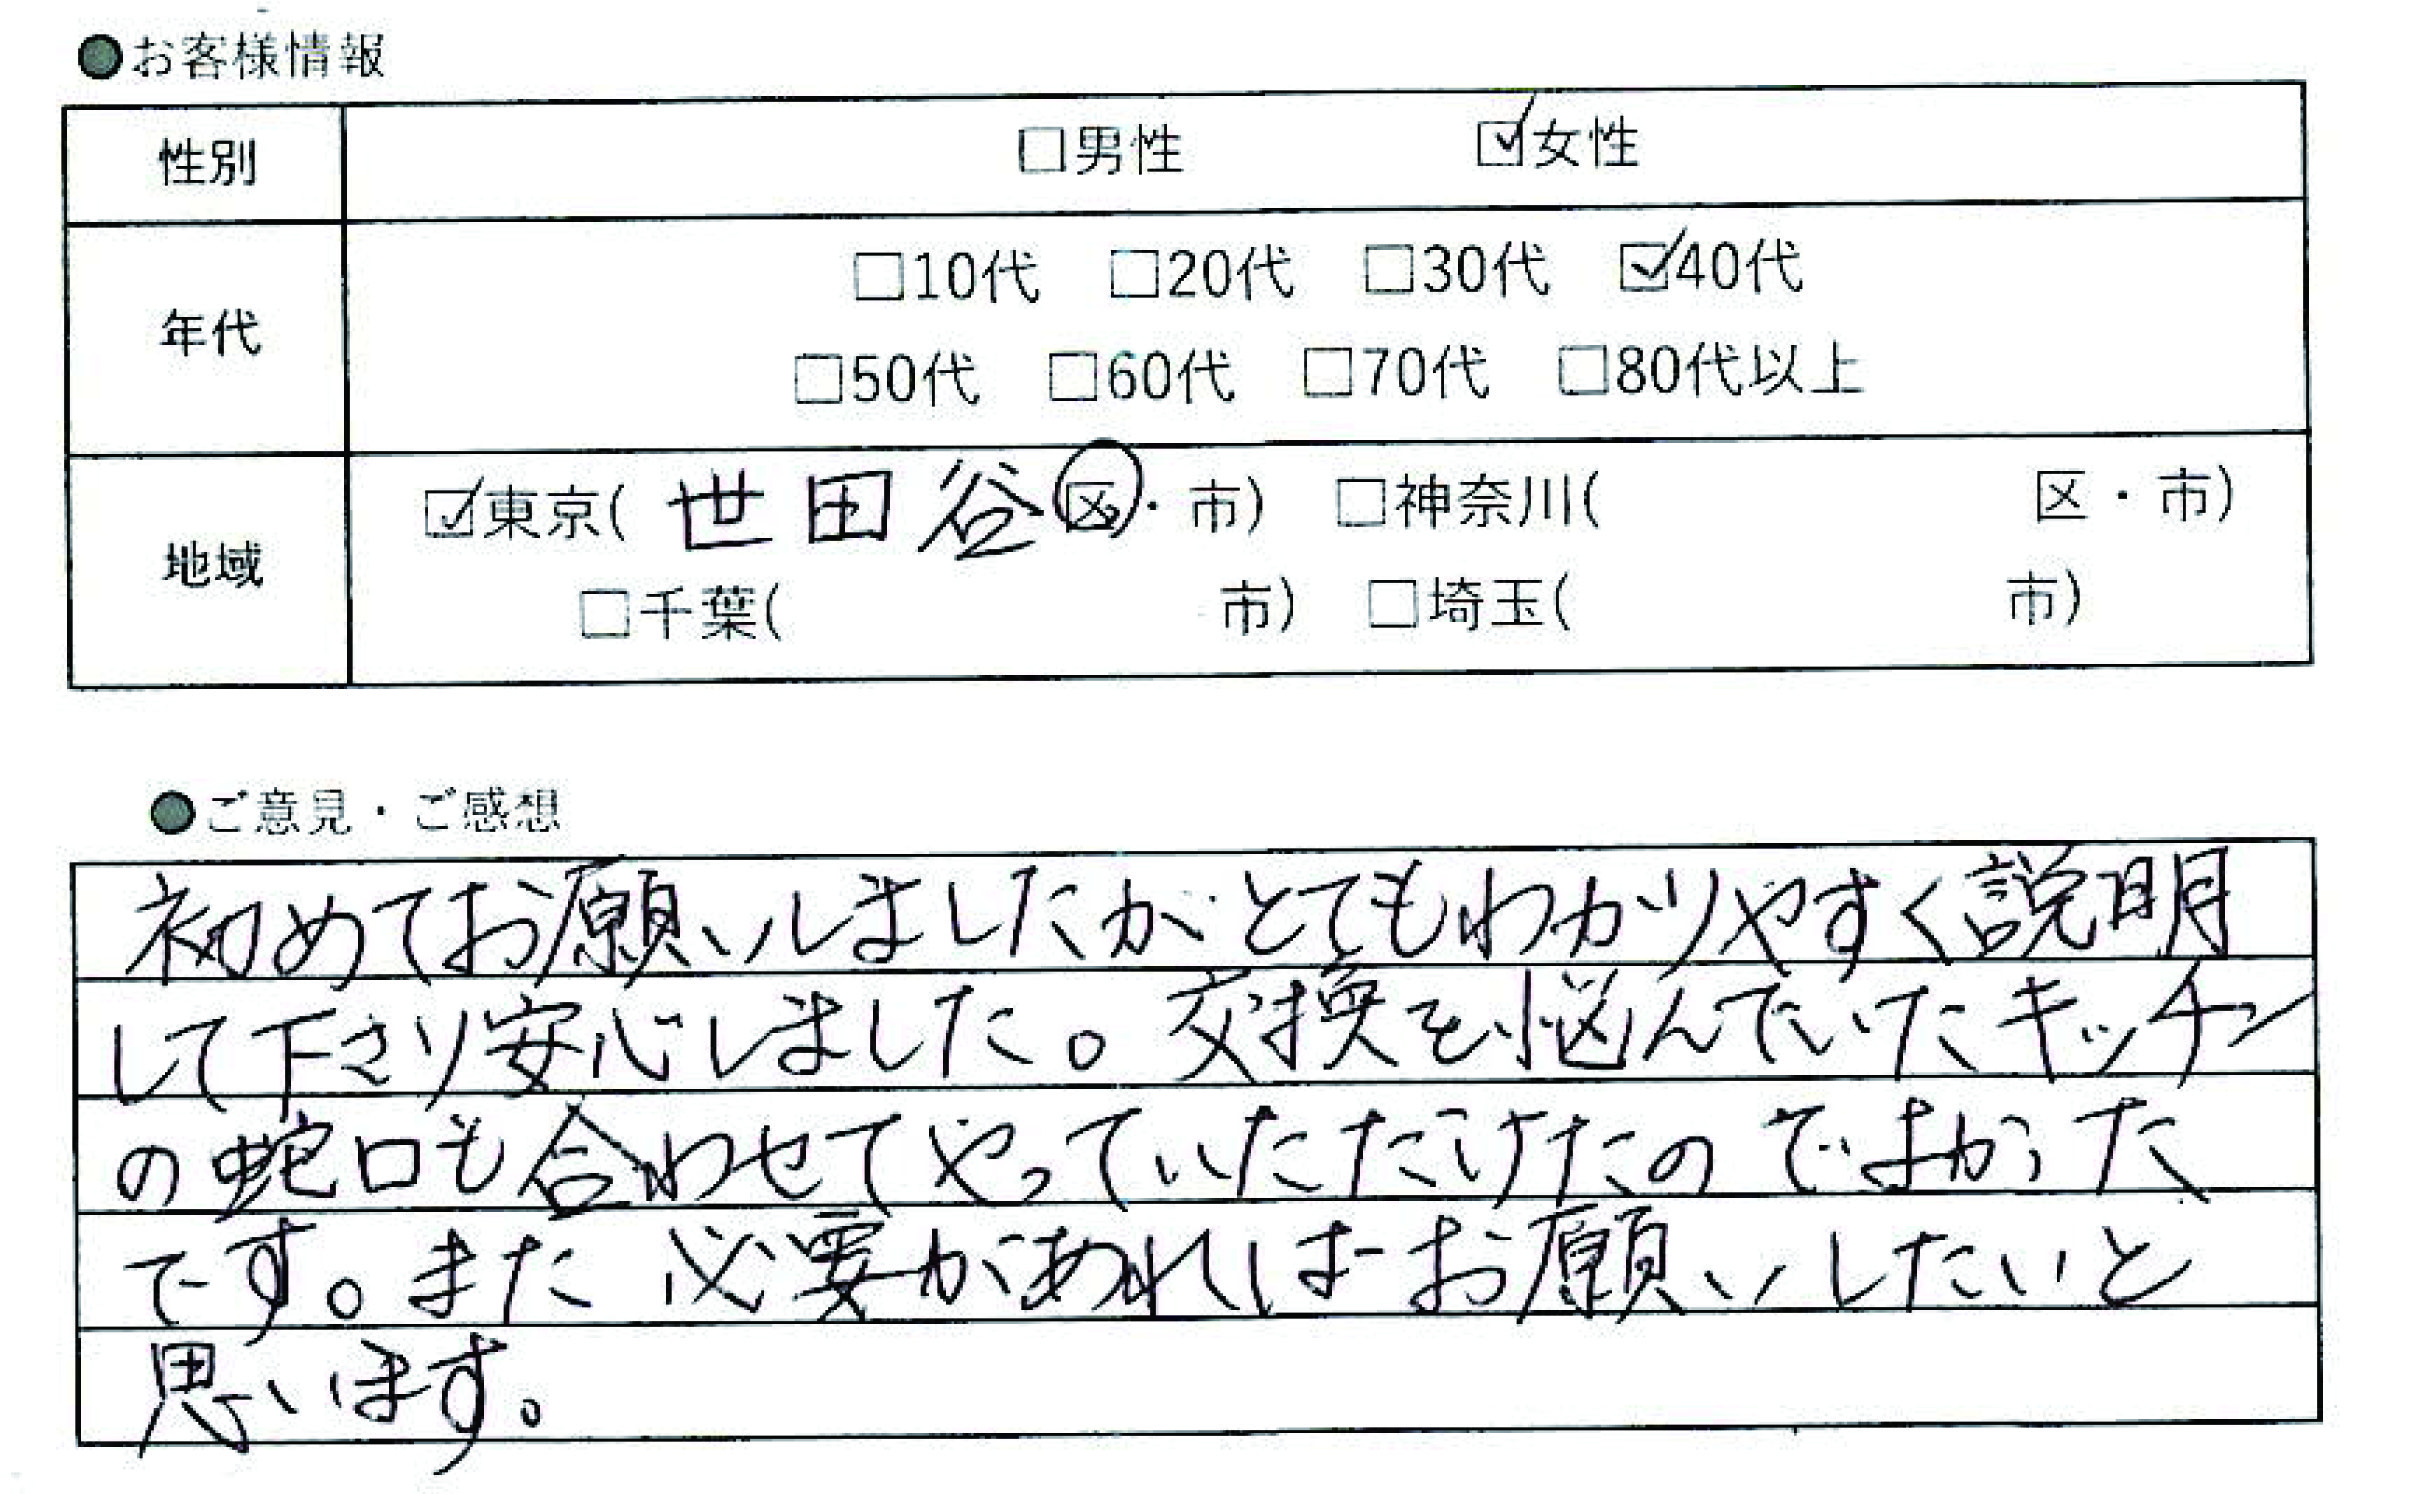 ●お客様情報
性別 □男性 ☑女性
年代 □10代 □20代 □30代 ☑40代
□50代 □60代 □70代 □80代以上
地域 ☑東京( 世田谷 区・市) □神奈川( 区・市)
□千葉( 市) □埼玉( 市)
●ご意見・ご感想
初めてお願いしましたが とてもわかりやすく説明
して下さり安心しました。交換を悩んでいたキッチン
の蛇口も合わせてやっていただけたので よかった
です。また 必要があればお願いしたいと
思います。